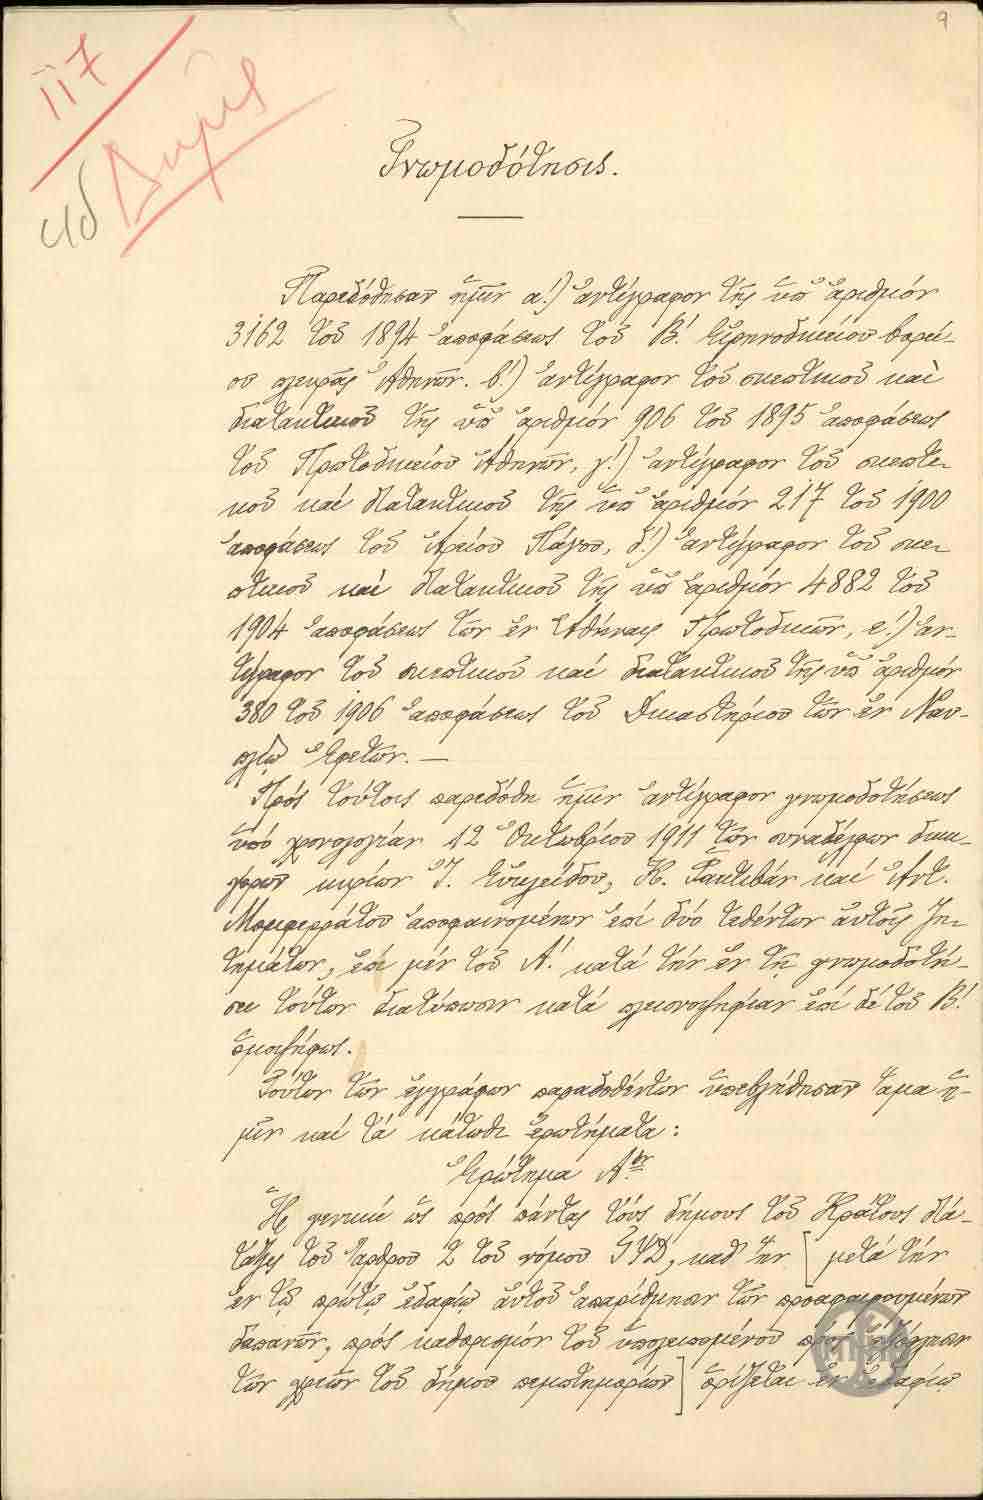 9
117
Γνωμοδότησις.
Παρεδόθησαν ἡμῖν α΄.) ἀντίγραφον τῆς ὑπ' ἀριθμόν
3162 τοῦ 1894 ἀποφάσεως τοῦ Β΄. Εἰρηνοδικείου βορεί-
ου πλευρᾶς Ἀθηνῶν. β΄.) ἀντίγραφον τοῦ σκεπτικοῦ καὶ
διατακτικοῦ τῆς ὑπ' ἀριθμόν 906 τοῦ 1895 ἀποφάσεως
τοῦ Πρωτοδικείου Ἀθηνῶν, γ΄.) ἀντίγραφον τοῦ σκεπτι-
κοῦ καί διατακτικοῦ τῆς ὑπ' ἀριθμόν 217 τοῦ 1900
ἀποφάσεως τοῦ Ἀρείου Πάγου, δ΄.) ἀντίγραφον τοῦ σκε-
πτικοῦ καὶ διατακτικοῦ τῆς ὑπ' ἀριθμόν 4882 τοῦ
1904 ἀποφάσεως τῶν ἐν Ἀθήναις Πρωτοδικῶν, ε΄.) ἀν-
τίγραφον τοῦ σκεπτικοῦ καί διατακτικοῦ τῆς ὑπ' ἀριθμόν
380 τοῦ 1906 ἀποφάσεως τοῦ Δικαστηρίου τῶν ἐν Ναυ-
πλίῳ Ἐφετῶν. —
Πρός τούτοις παρεδόθη ἡμῖν ἀντίγραφον γνωμοδοτήσεως
ὑπό χρονολογίαν 12 Ὀκτωβρίου 1911 τῶν συναδέλφων δικη-
γόρων κυρίων Ἰ. Εὐκλείδου, Κ. Ρακτιβάν καί Ἀντ.
Μομφερράτου ἀποφαινομένων ἐπί δύο τεθέντων αὐτοῖς ζη-
τημάτων, ἐπί μέν τοῦ Α΄. κατά τήν ἐν τῇ γνωμοδοτή-
σει τούτων διατύπωσιν κατά πλειονοψηφίαν ἐπί δέ τοῦ Β΄.
ὁμοψήφως.
Τούτων τῶν ἐγγράφων παραδοθέντων ὑπεβλήθησαν ἅμα ἡ-
μῖν καί τά κάτωθι ἐρωτήματα:
Ἐρώτημα Α.ον
Ἡ γενική ὡς πρός πάντας τούς δήμους τοῦ Κράτους διά-
ταξις τοῦ ἄρθρου 2 τοῦ νόμου ΓΥΔ, καθ' ἥν [μετά τήν
ἐν τῷ πρώτῳ ἐδαφίῳ αὐτοῦ ἀπαρίθμησιν τῶν προαφαιρουμένων
δαπανῶν, πρός καθορισμόν τοῦ ὑπολειπομένου πρός ἐξόφλησιν
τῶν χρεῶν τοῦ δήμου πεμπτημορίου] ὁρίζεται ἐν ἐδαφίῳ